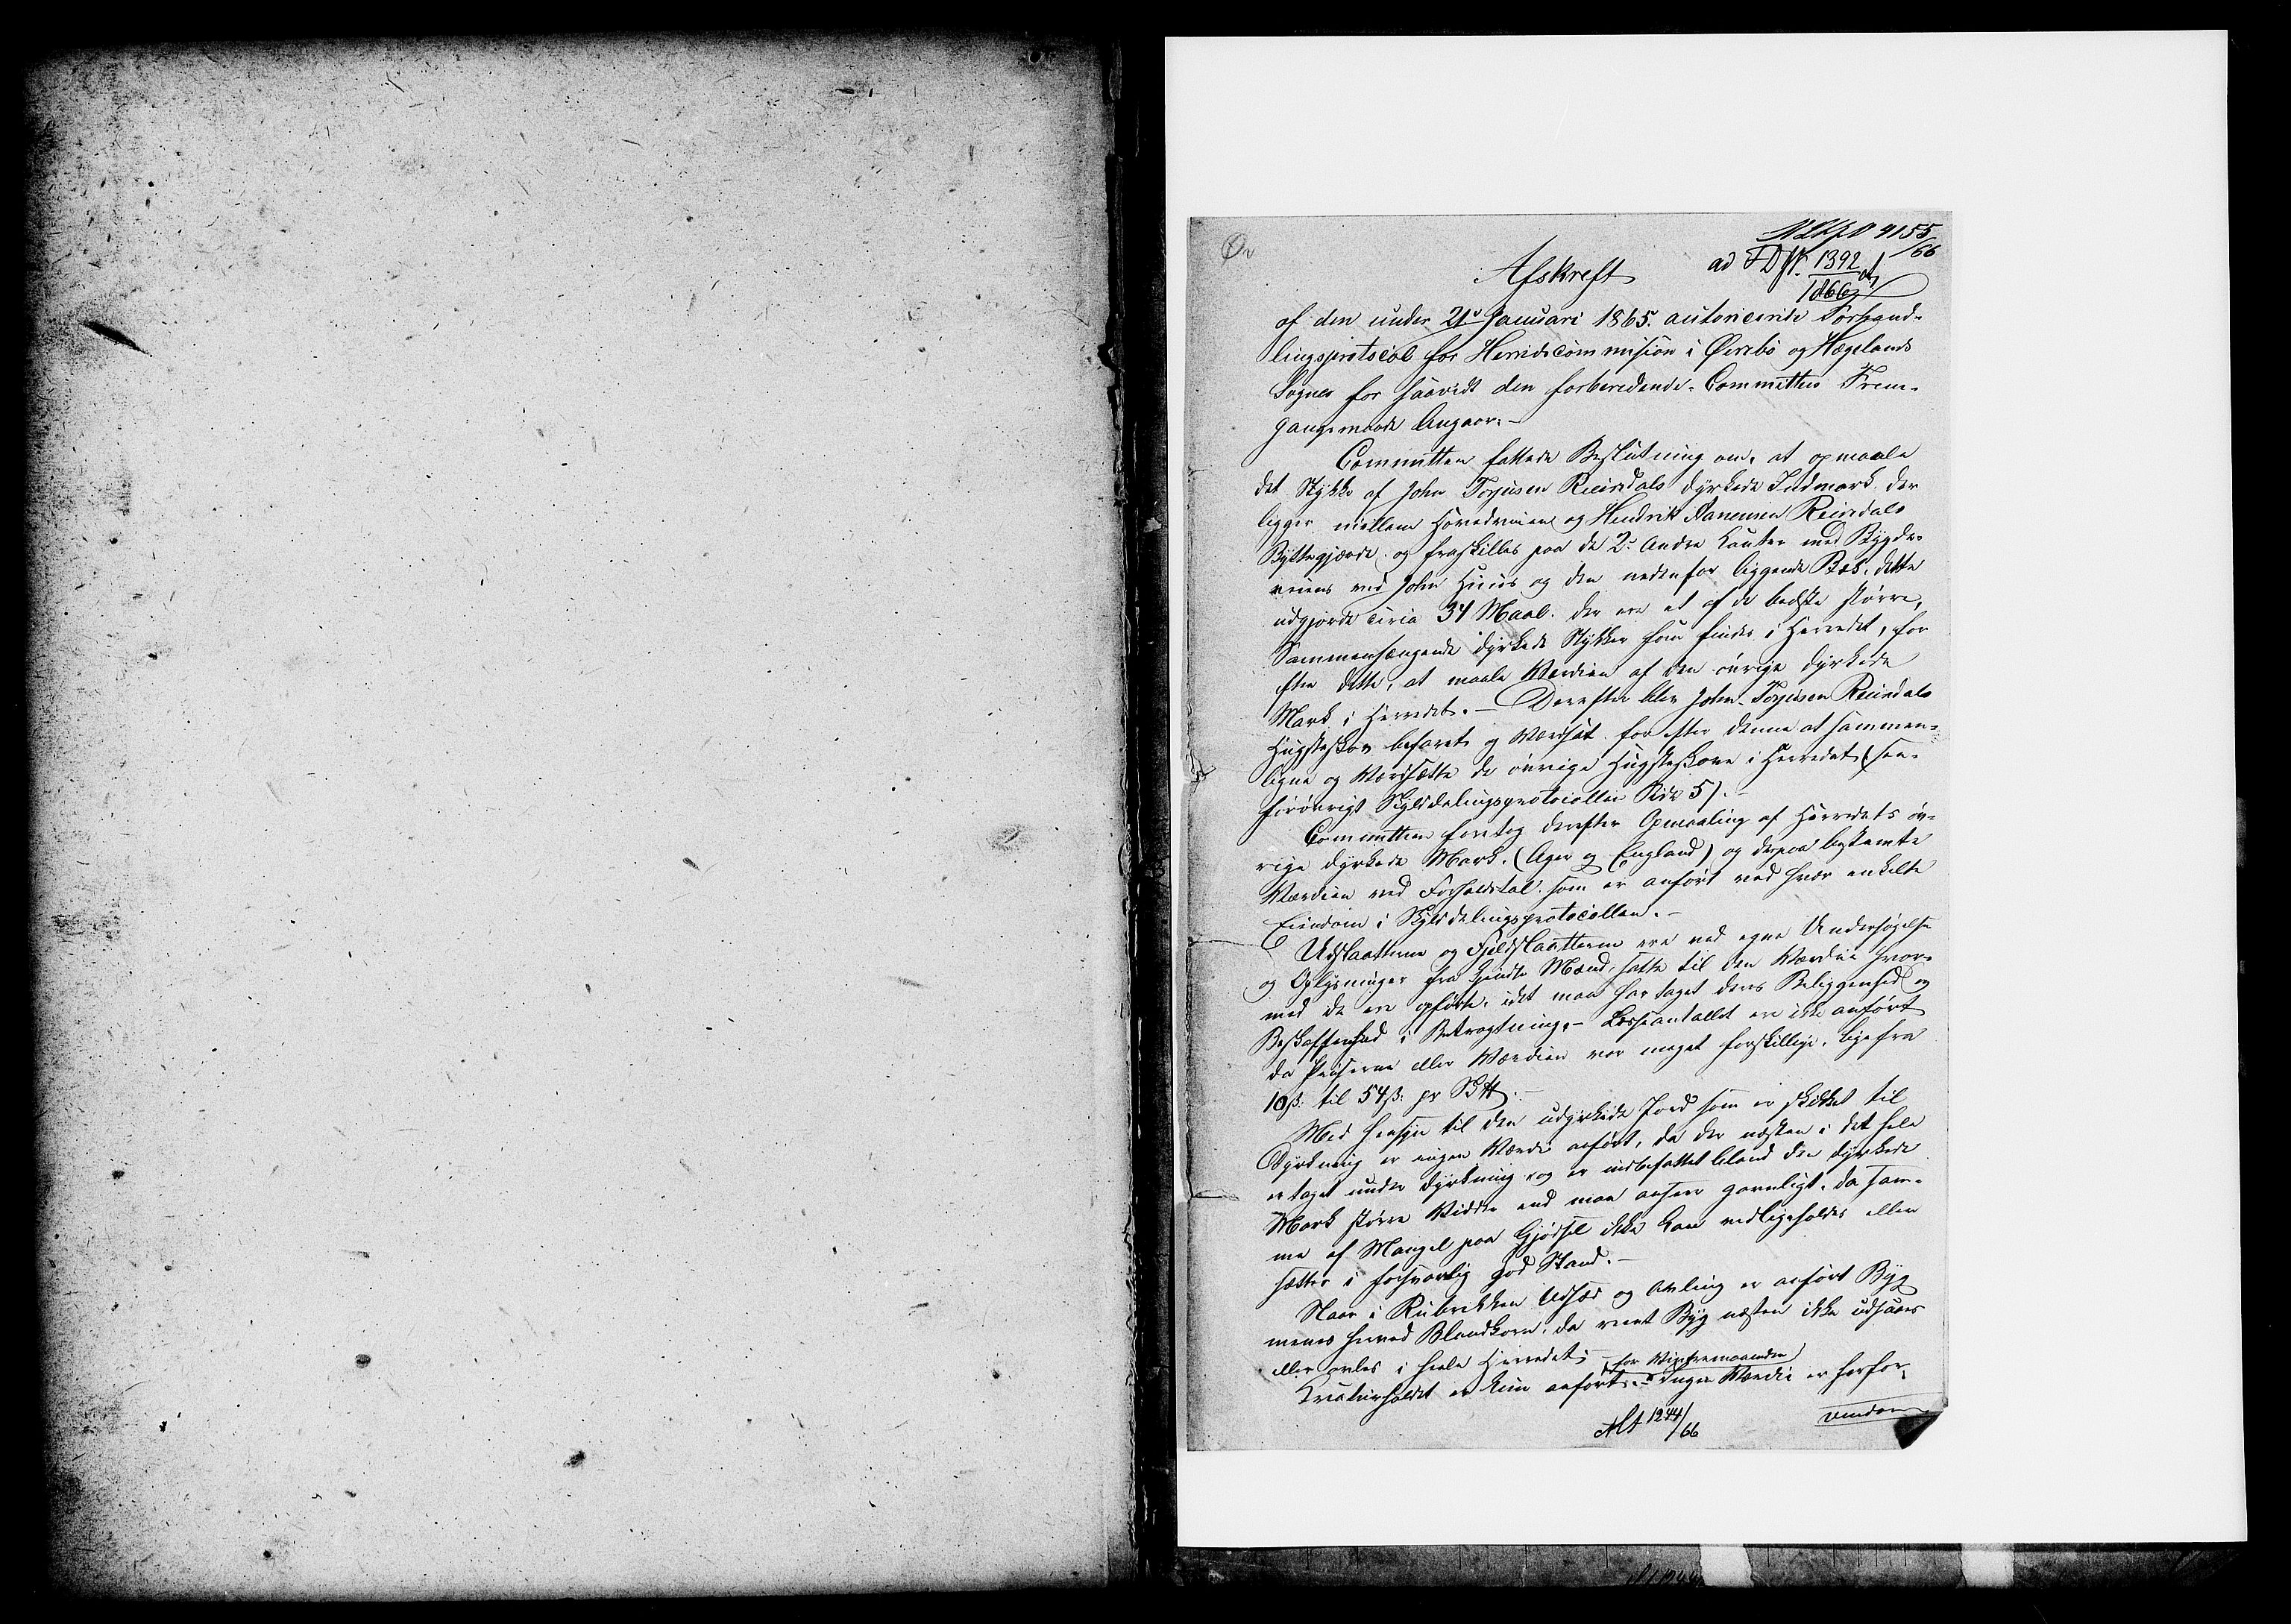 Øv
4155/66
ad FD JN. 1392/1866
Afskreft
af den under 21de Januari 1865. autoricerede Forhand-
lingsprotocol for Herredscommision i Øvrebø og Hægelands
Sogner for saavidt den forberedende Committees Frem-
gangsmaade Angaar.-
Committeen fattede Beslutning om, at opmaale
det Stykke af John Torjusen Reiersdals dyrkede Indmark, der
ligger mellem Hovedveien og Hendrik Aanensen Reiersdals
Byttegjærde og fraskilles paa de 2de Andre Kanter med Bygde-
veiens ved John Huus og den nedenfor liggende Bæk, dette
udgjorde circa 34 Maal. der ere et af de bedste større,
Sammenhængende dyrkede Stykker som findes i Herredet, for
efter dette, at maale Værdien af den øvrige dyrkede
Mark i Herredet. - Derefter blev John Torjusen Reiersdals
Hugsteskov befaret og Værdsat for efter denne at sammen-
ligne og Værdsætte de øvrige Hugsteskove i Herredet (see-
forøvrigt Skylddelingsprotocollen Side 5).-
Committeen foretog derefter Opmaaling af Herredets øv-
rige dyrkede Mark. (Ager og England) og derpaa bestemte
Værdien ved Forholdstal som er anført ved hver enkelte
Eiendom i Skylddelingsprotocollen.-
Udslaatterne og Fjeldslaatterne ere ved egne Undersøgelse
og Oplysninger fra kjendte Mænd, satte til den Værdie hvor-
med de ere opførte, idet man har taget deres Beliggenhed og
Beskaffenhed i Betragtning.- Læsseantallet ere ikke anført
da Priserne eller Værdien var meget forskjellige, ligefra
10ß. til 54ß. pr S℔.-
Med Hensyn til den udyrkede Jord som er skikket til
Dyrkning er ingen Værdie anført, da der næsten i det hele
er taget under dyrkning og er indbefattet bland den dyrkede
Mark større Vidder end man anseer gavnligt, da sam-
me af Mangel paa Gjødsel ikke kan vedligeholdes eller
sættes i forsvarlig god Stand.-
Naar i Rubrikken Udsæd og Avling er anført Byg
menes herved Blandkorn, da reent Byg næsten ikke udsaaes
eller avles i hele Herredet.
for Vintermaanden
Kreaturholdet er kun anført.- Ingen Værdie er herfor,
Alt 1244/66
vendes